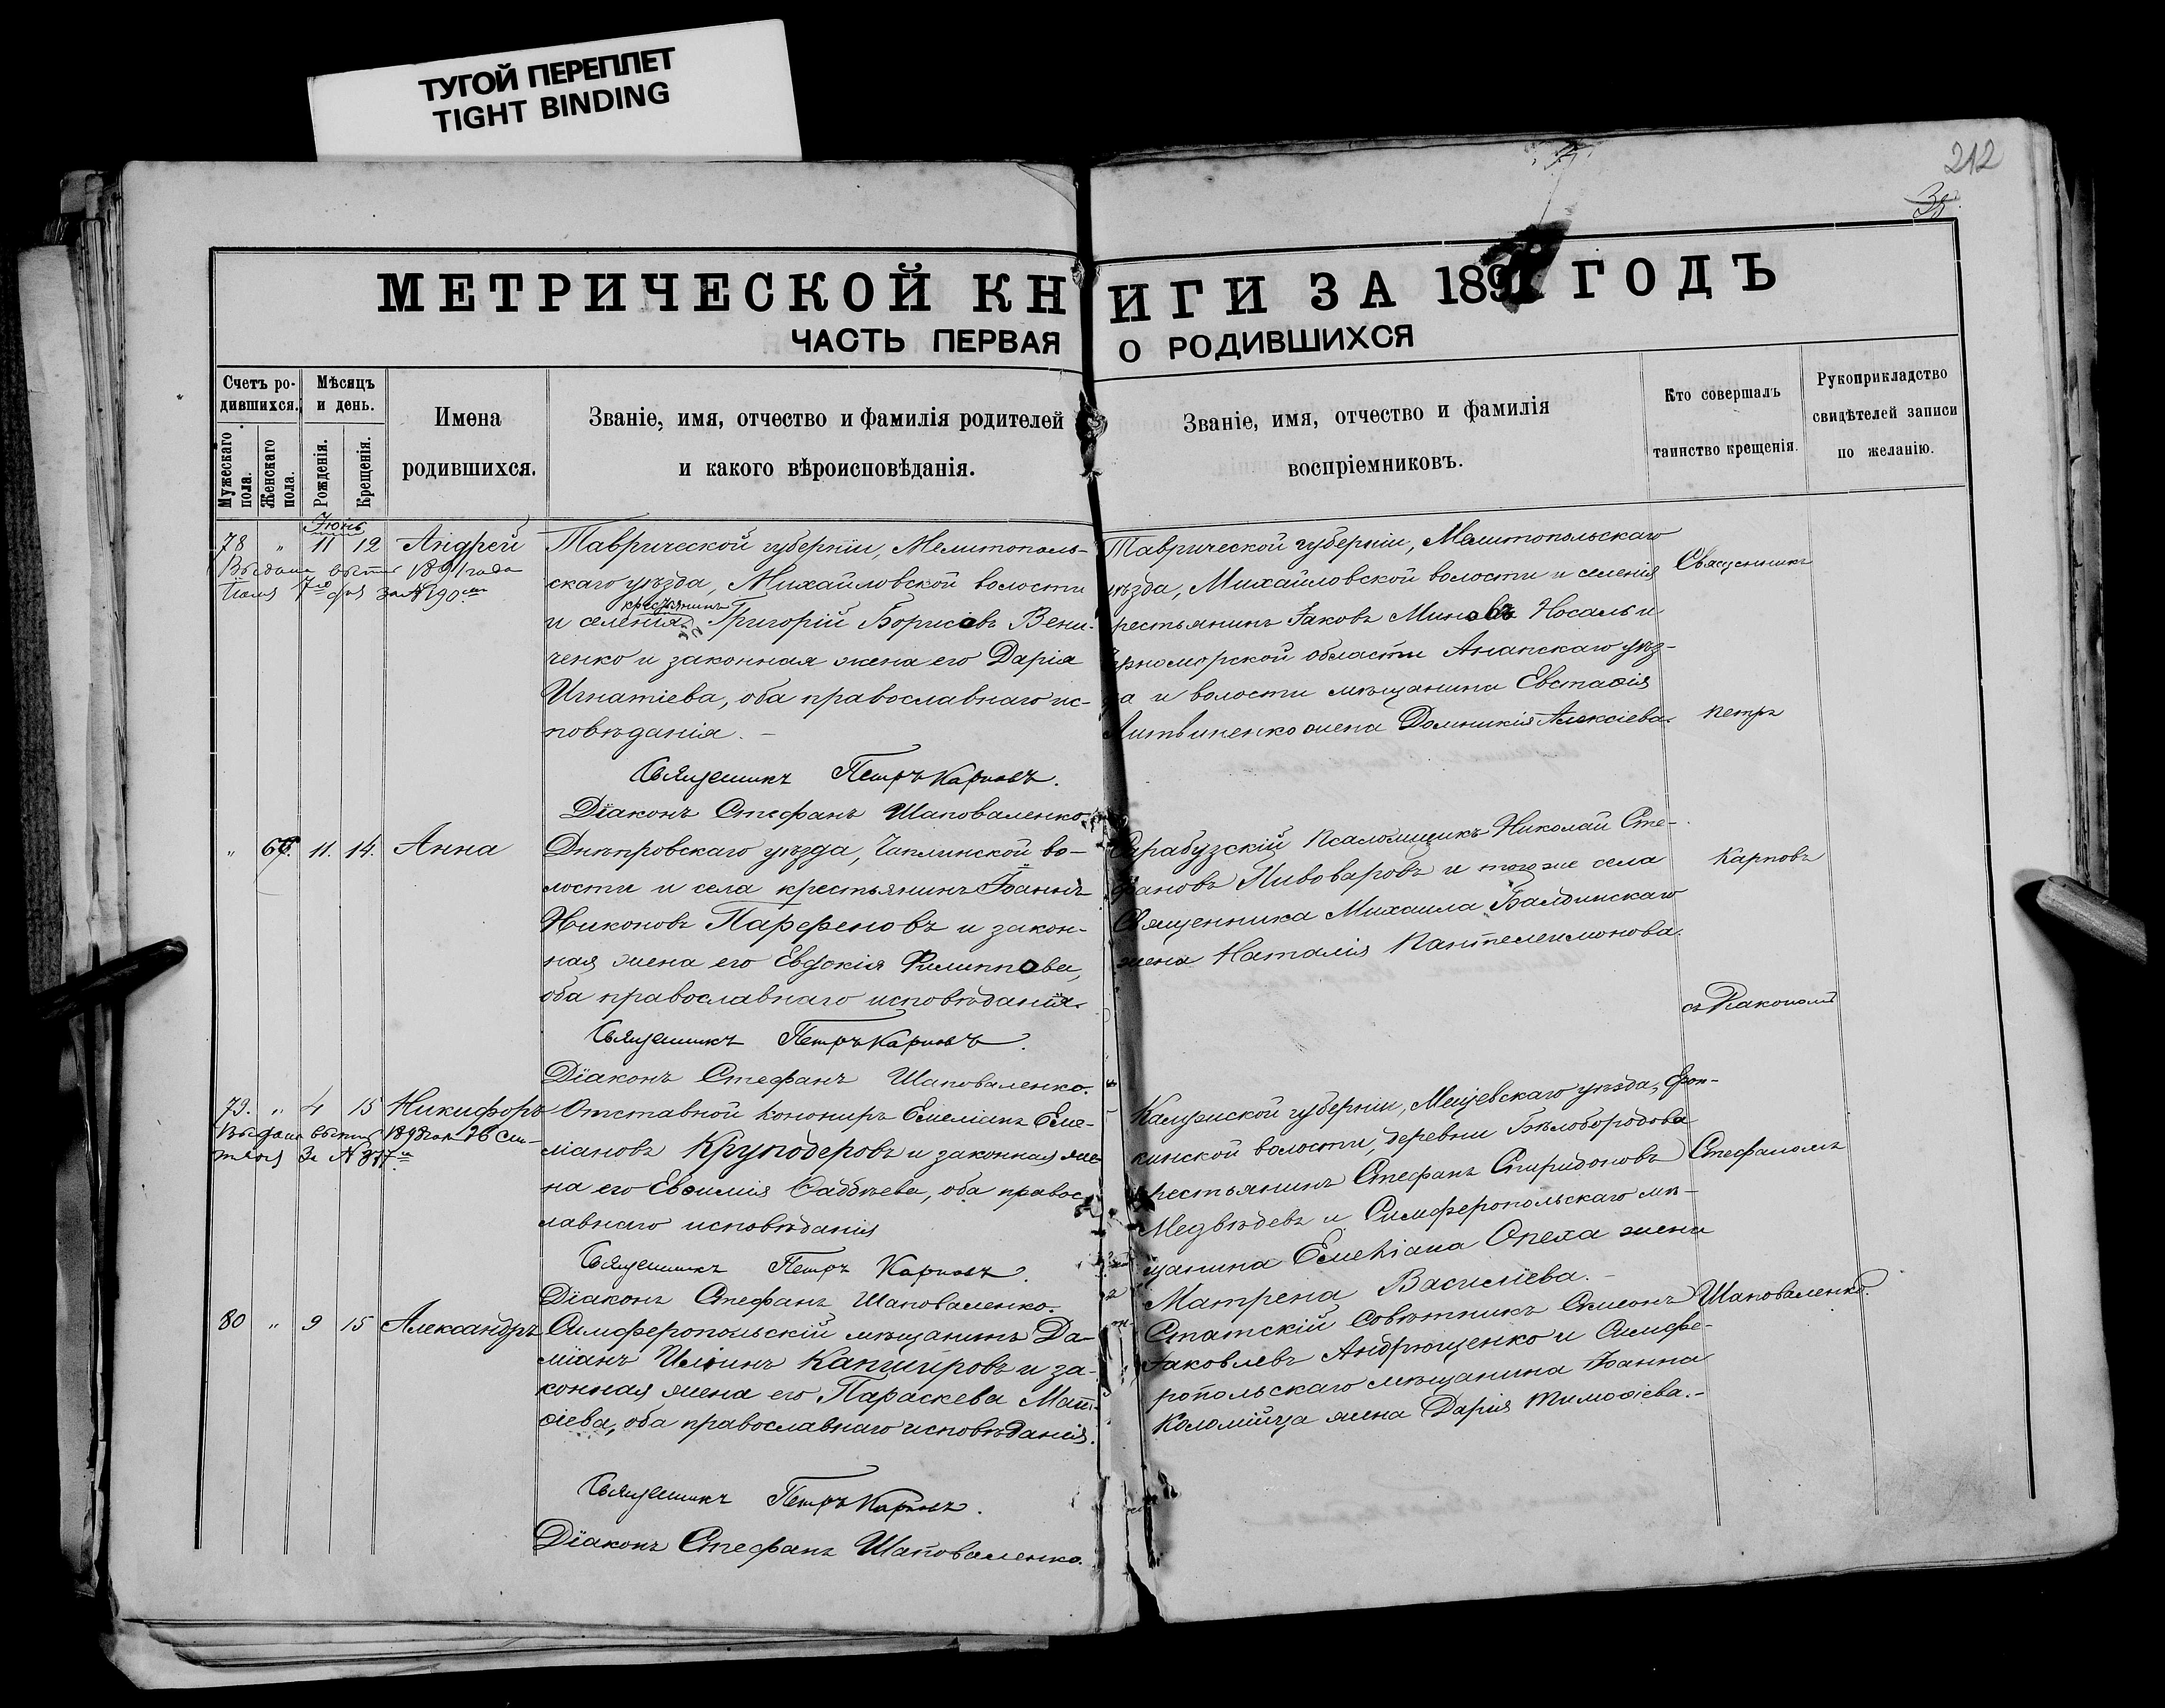 ТУГОЙ ПЕРЕПЛЕТ
TIGHT BINDING
212
МЕТРИЧЕСКОЙ КНИГИ ЗА 1891 ГОДЪ
ЧАСТЬ ПЕРВАЯ О РОДИВШИХСЯ
Счетъ ро-
дившихся.
Мужескаго
пола.
Женскаго
пола.
Мѣсяцъ
и день.
Рожденія.
Крещенія.
Имена
родившихся.
Званіе, имя, отчество и фамилія родителей
и какого вѣроисповѣданія.
Званіе, имя, отчество и фамилія
воспріемниковъ.
Кто совершалъ
таинство крещенія.
Рукоприкладство
свидѣтелей записи
по желанію.
Іюнь
78 " 11 12 Андрей
Выдана 1891 года
Іюля 7го дня за № 190
Таврической губерніи, Мелитополь-
скаго уѣзда, Михайловской волости
и селенія крестьянинъ Григорій Борисовъ Вени-
ченко и законная жена его Дарія
Игнатіева, оба православнаго ис-
повѣданія. -
Священникъ Петръ Карповъ.
Діаконъ Стефанъ Шаповаленко.
Таврической губерніи, Мелитопольскаго
уѣзда, Михайловской волости и селенія
крестьянинъ Іаковъ Миновъ Носаль и
Черноморской области Анапскаго уѣз-
да и волости мѣщанина Евстаѳія
Литвиненко жена Домникія Алексіева.
" 66. 11. 14. Анна
Днѣпровскаго уѣзда, Чаплинской во-
лости и села крестьянинъ Іоаннъ
Никоновъ Парфеновъ и закон-
ная жена его Евдокія Филиппова,
оба православнаго исповѣданія.
Священникъ Петръ Карповъ.
Діаконъ Стефанъ Шаповаленко.
Сарабузскій Псаломщикъ Николай Сте-
фановъ Пивоваровъ и того же села
Священника Михаила Балдинскаго
жена Наталія Пантелеимонова.
79. " 4 15 Никифоръ
Отставной канониръ Емеліанъ Еме-
ліановъ Круподеровъ и законная же-
на его Евѳимія Саввѣева, оба правос-
лавнаго исповѣданія
Священникъ Петръ Карповъ.
Діаконъ Стефанъ Шаповаленко.
Калужской губерніи, Мещевскаго уѣзда,
кинской волости, деревни Бѣлобородова
крестьянинъ Стефанъ Спиридоновъ
Медвѣдевъ и Симферопольскаго мѣ-
щанина Емеліана Опеха жена
Матрена Василіева. -
80 " 9 15 Александръ
Симферопольскій мѣщанинъ Да-
міанъ Иліинъ Капшировъ и за-
конная жена его Параскева Мат-
ѳіева, оба православнаго исповѣданія.
Священникъ Петръ Карповъ.
Діаконъ Стефанъ Шаповаленко.
Статскій совѣтникъ Симеонъ
Іаковлевъ Андрющенко и Симфе-
ропольскаго мѣщанина Іоанна
Коломійца жена Дарія Тимоѳіева. -
Священникъ
Петръ
Карповъ
съ Діакономъ
Стефаномъ
Шаповаленко.